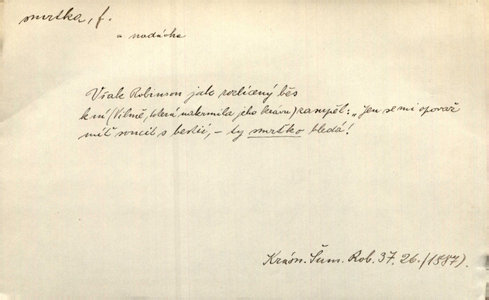 smrtka, f.
a nadávka
Však Robinson jako rozlícený běs
k ní (Vilmě, která nakrmila jeho krávu) zasupěl: „Jen se mi opovaž
mít soucit s bestií, – ty smrtko bledá!
Krásn. Šum. Rob. 37. 26. (1887).